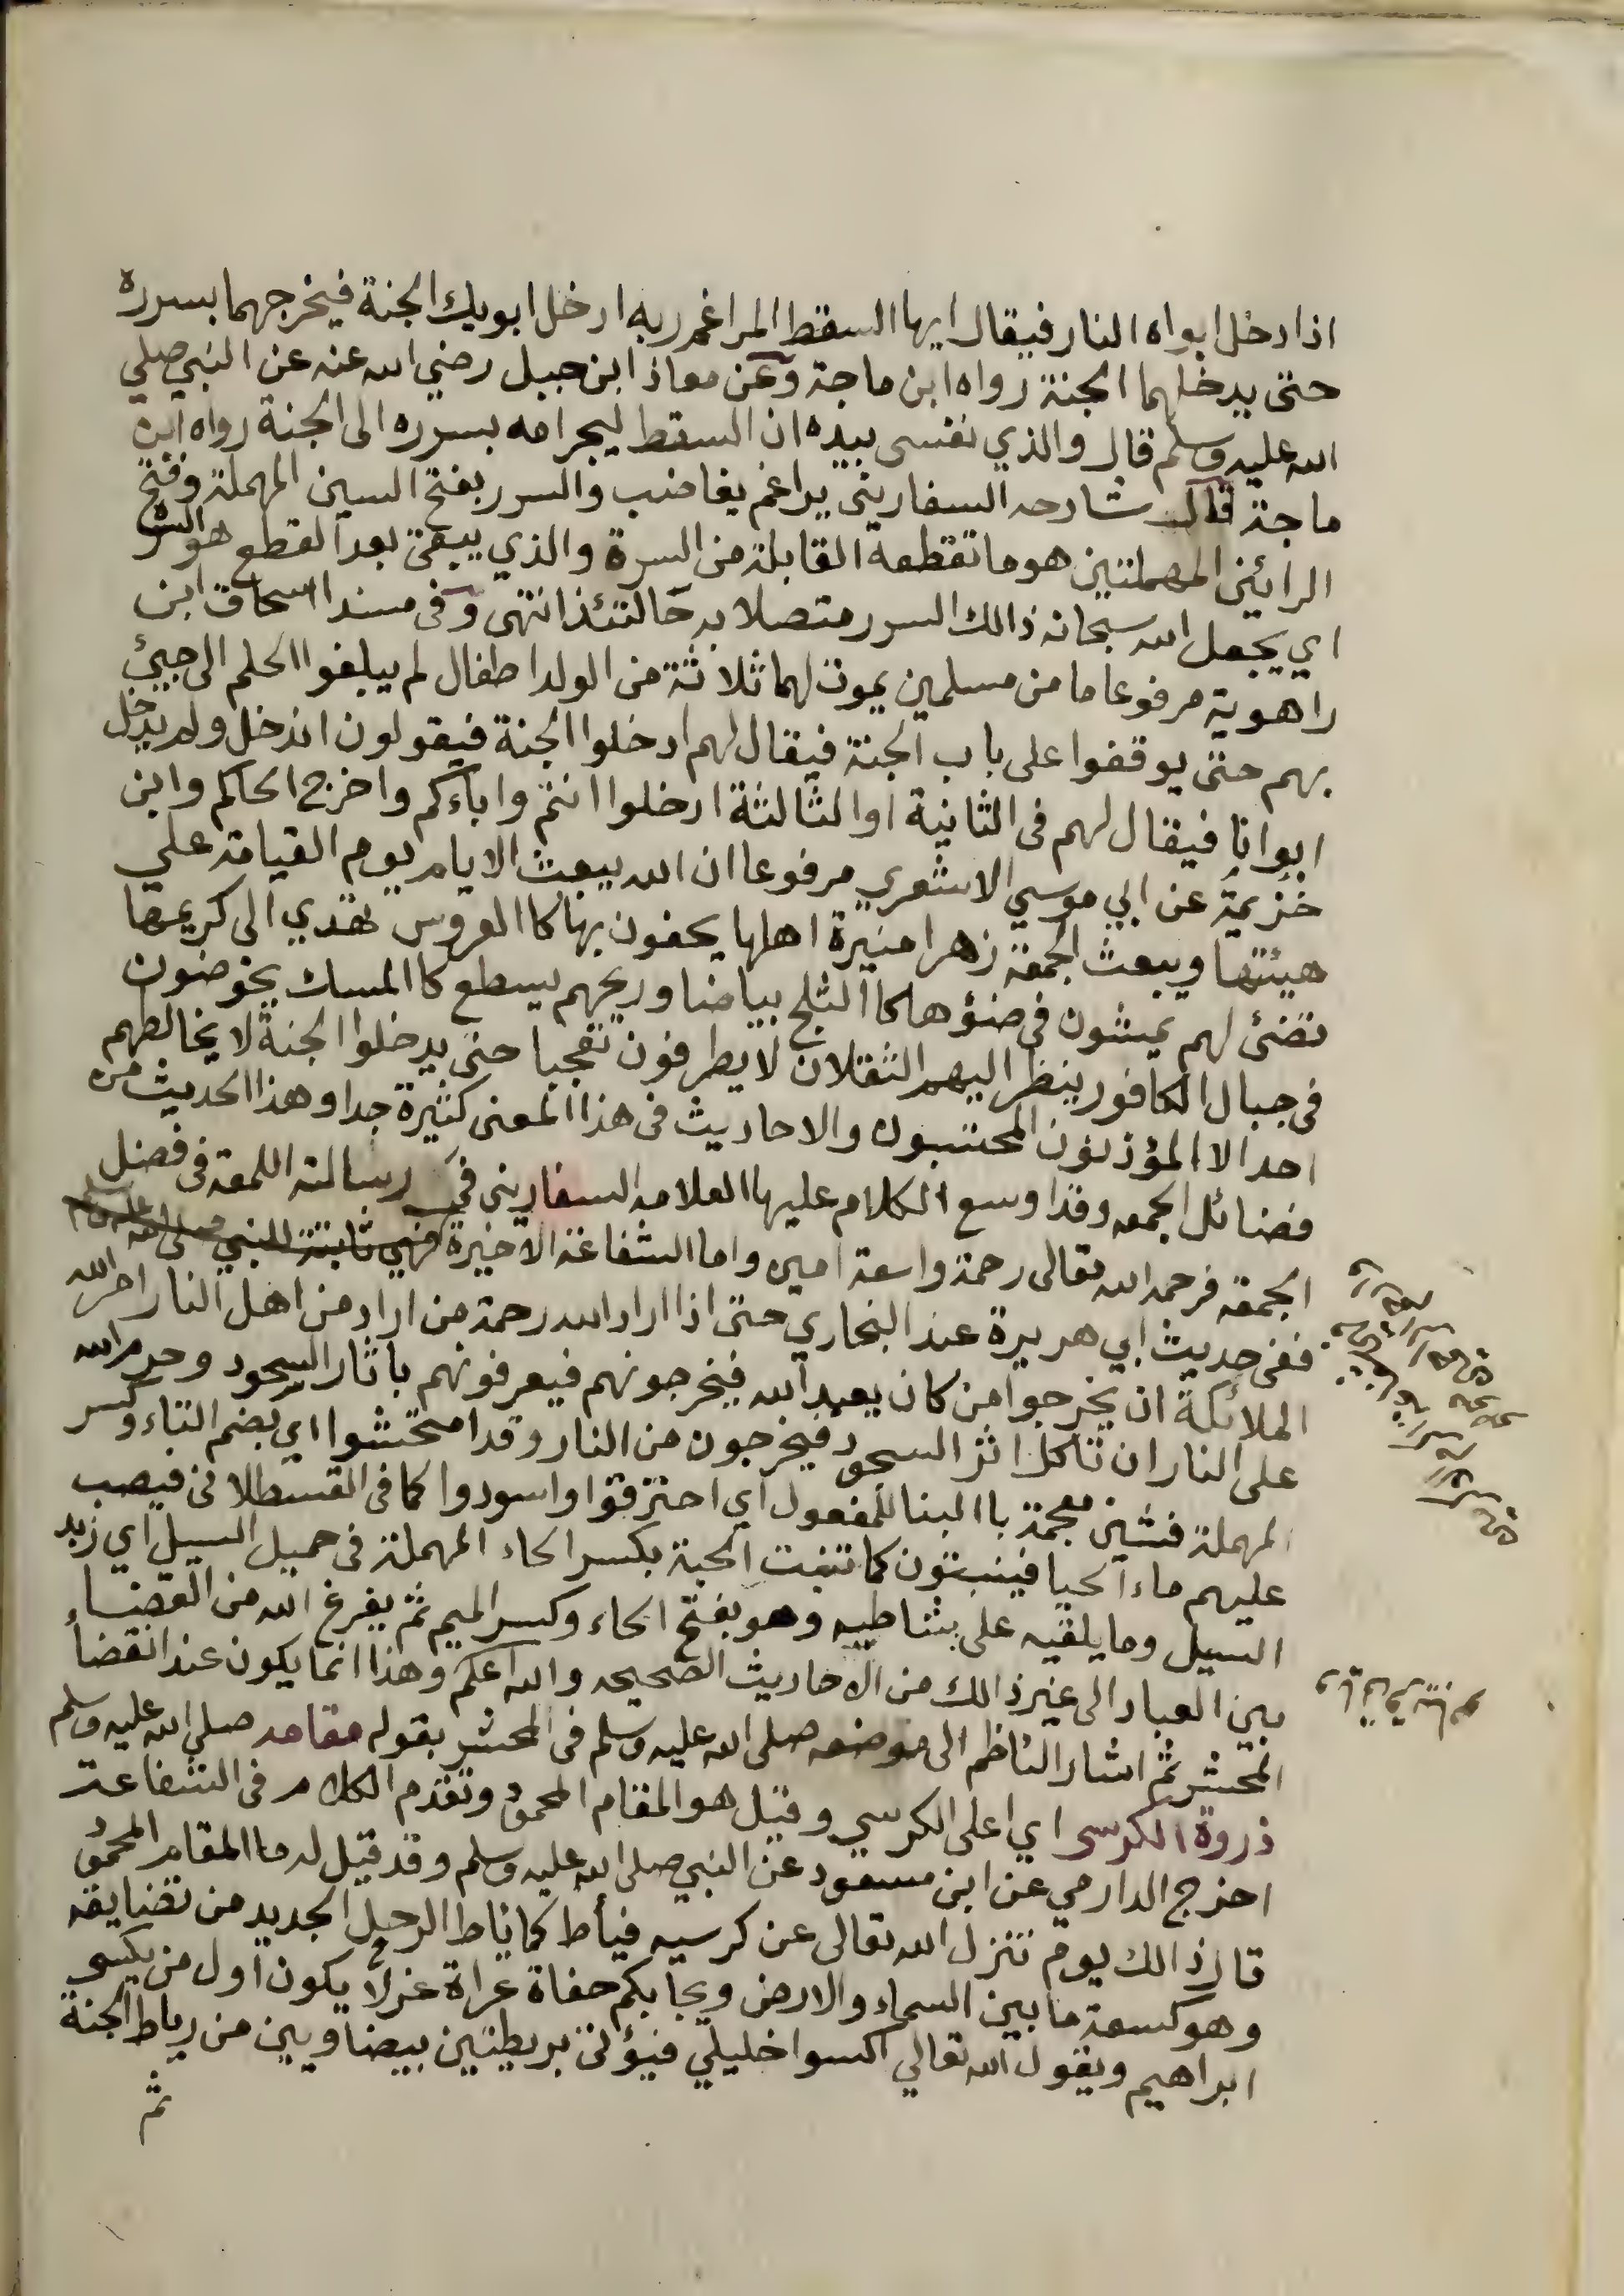 اذا دخل ابواه النار فيقال ايها السقط المراغم ربه ادخل ابويك الجنة فيخرجهما بسرره
حتى يدخلهما الجنة رواه ابن ماجة وعن معاذ ابن جبل رضي الله عنه عن النبي صلي
الله عليه وسلم قال والذي نفسى بيده ان السقط ليجر امه بسرره الى الجنة رواه ابن
ماجة قال شارحه السفارينى يراغم يغاضب والسرر بفتح السين المهملة وفتح
الرائين المهملتين هو ما تقطعه القابلة من السرة والذي يبقى بعد القطع هو السر
اي يجعل الله سبحانه ذالك السرر متصلا به حالتئذ انتهى وفى مسند اسحاق ابن
راهوية مرفوعا ما من مسلمين يموت لهما ثلاثة من الولد اطفال لم يبلغوا الحلم الى جيئ
بهم حتى يوقفوا على باب الجنة فيقال لهم ادخلوا الجنة فيقولون اندخل ولم يدخل
ابوانا فيقال لهم فى الثانية او الثالثة ادخلوا انتم واباءكم واخرج الحاكم وابن
خزيمة عن ابي موسي الاشعري مرفوعا ان الله يبعث الايام يوم القيامة علي
هيئتها ويبعث الجمعة زهرا منيرة اهلها يحفون بها كا العروس تهدي الى كريمها
تضئ لهم يمشون فى ضؤها كا الثلج بياضا وريحهم يسطع كا المسك يخوضون
فى جبال الكافور ينظر اليهم الثقلان لا يطرفون تعجبا حتى يدخلوا الجنة لا يخالطهم
احد الا المؤذنون المحتسبون والاحاديث فى هذا المعنى كثيرة جدا وهذا الحديث من
فضائل الجمعه وقد اوسع الكلام عليها العلامه السفارينى في رسالته اللمعة فى فضل
الجمعة فرحمه الله تعالى رحمة واسعة امين واما الشفاعة الاخيرة فهي ثابتة للنبي صلى الله عليه وسلم
ففى حديث ابي هريرة عند البخاري حتى اذا اراد الله رحمة من اراد من اهل النار امر الله
الملائكة ان يخرجوا من كان يعبد الله فيخرجونهم فيعرفونهم باثار السجود وحرم الله
على النار ان تاكل اثر السجود فيخرجون من النار وقد امتحشوا اي بضم التاء وكسر
المهملة فشين معجمة با البنا للمفعول اي احترقوا واسودوا كما فى القسطلانى فيصب
عليهم ماء الحيا فينبتون كما تنبت الحبة بكسر الحاء المهملة فى حميل السيل اي زبد
السيل وما يلقيه على شاطيه وهو بفتح الحاء وكسر الميم ثم يفرغ الله من القضاء
بين العباد الى غير ذالك من الاحاديث الصحيحه والله اعلم وهذا انما يكون عند انقضاء
المحشر ثم اشار الناظم الى موضعه صلى الله عليه وسلم فى المحشر بقوله مقامه صلى الله عليه وسلم
ذروة الكرسى اي اعلى الكرسي وقيل هو المقام المحمود وتقدم الكلام فى الشفاعة
اخرج الدارمي عن ابن مسعود عن النبي صلى الله عليه وسلم وقد قيل له ما المقام المحمود
قال ذالك يوم تنزل الله تعالى عن كرسيه فيأط كما ياط الرحل الجديد من تضايقه
وهو كسعة ما بين السماء والارض ويجا بكم حفاة عراة غرلا يكون اول من يكسى
ابراهيم ويقول الله تعالي اكسوا خليلي فيؤتى بريطتين بيضاويين من رياط الجنة
ثم